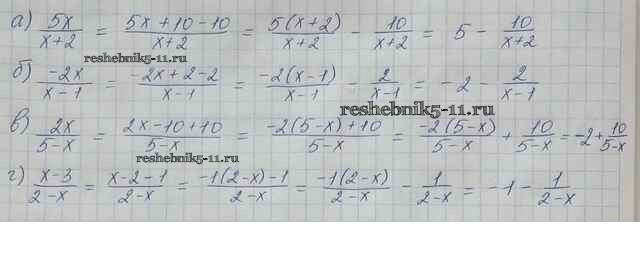 а) 5x/(x+2) = (5x+10-10)/(x+2) = 5(x+2)/(x+2) - 10/(x+2) = 5 - 10/(x+2)
reshebnik5-11.ru
б) -2x/(x-1) = (-2x+2-2)/(x-1) = -2(x-1)/(x-1) - 2/(x-1) = -2 - 2/(x-1)
reshebnik5-11.ru
в) 2x/(5-x) = (2x-10+10)/(5-x) = (-2(5-x)+10)/(5-x) = -2(5-x)/(5-x) + 10/(5-x) = -2 + 10/(5-x)
reshebnik5-11.ru
г) (x-3)/(2-x) = (x-2-1)/(2-x) = (-1(2-x)-1)/(2-x) = -1(2-x)/(2-x) - 1/(2-x) = -1 - 1/(2-x)